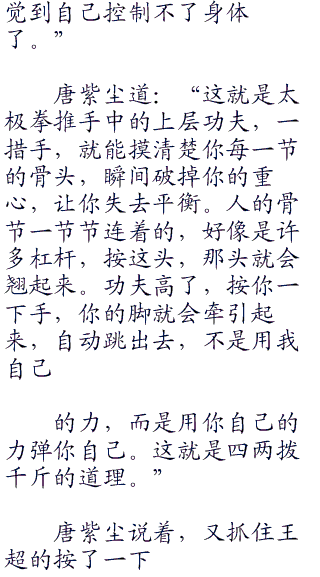 觉到自己控制不了身体
了。”
唐紫尘道：“这就是太
极拳推手中的上层功夫，一
措手，就能摸清楚你每一节
的骨头，瞬间破掉你的重
心，让你失去平衡。人的骨
节一节节连着的，好像是许
多杠杆，按这头，那头就会
翘起来。功夫高了，按你一
下手，你的脚就会牵引起
来，自动跳出去，不是用我
自己
的力，而是用你自己的
力弹你自己。这就是四两拨
千斤的道理。”
唐紫尘说着，又抓住王
超的按了一下